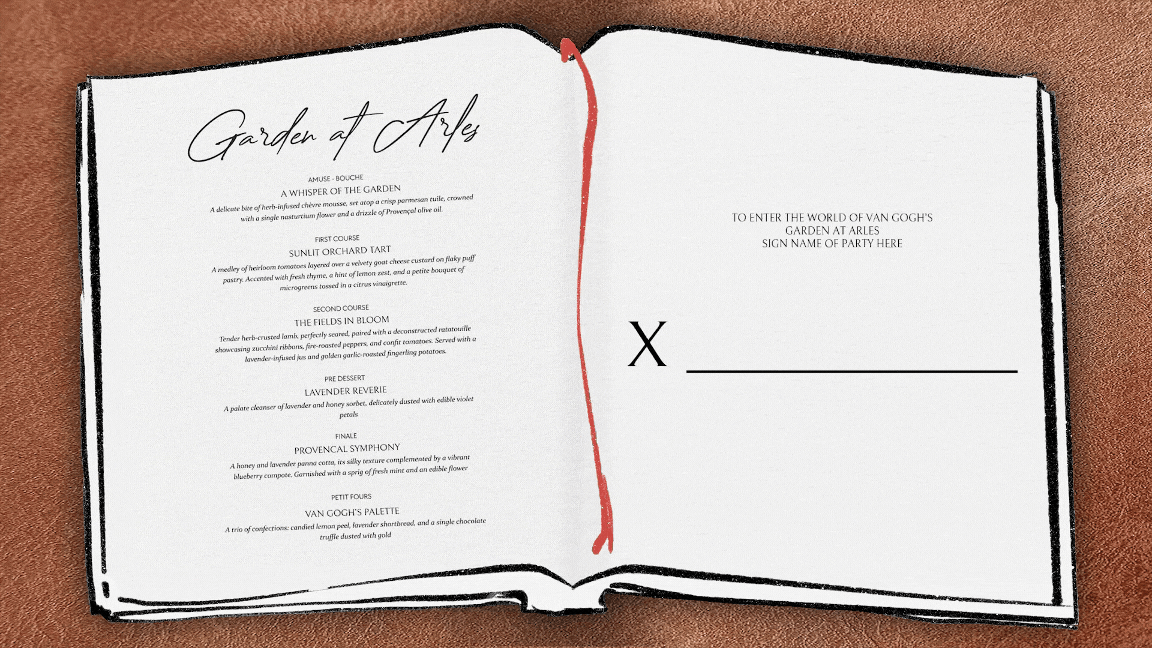 Garden at Arles
AMUSE - BOUCHE
A WHISPER OF THE GARDEN
A delicate bite of herb-infused chèvre mousse, set atop a crisp parmesan tuile, crowned
with a single nasturtium flower and a drizzle of Provençal olive oil.
FIRST COURSE
SUNLIT ORCHARD TART
A medley of heirloom tomatoes layered over a velvety goat cheese custard on flaky puff
pastry. Accented with fresh thyme, a hint of lemon zest, and a petite bouquet of
microgreens tossed in a citrus vinaigrette.
SECOND COURSE
THE FIELDS IN BLOOM
Tender herb-crusted lamb, perfectly seared, paired with a deconstructed ratatouille
showcasing zucchini ribbons, fire-roasted peppers, and confit tomatoes. Served with a
lavender-infused jus and golden garlic-roasted fingerling potatoes.
PRE DESSERT
LAVENDER REVERIE
A palate cleanser of lavender and honey sorbet, delicately dusted with edible violet
petals
FINALE
PROVENCAL SYMPHONY
A honey and lavender panna cotta, its silky texture complemented by a vibrant
blueberry compote. Garnished with a sprig of fresh mint and an edible flower
PETIT FOURS
VAN GOGH'S PALETTE
A trio of confections: candied lemon peel, lavender shortbread, and a single chocolate
truffle dusted with gold
TO ENTER THE WORLD OF VAN GOGH'S
GARDEN AT ARLES
SIGN NAME OF PARTY HERE
X